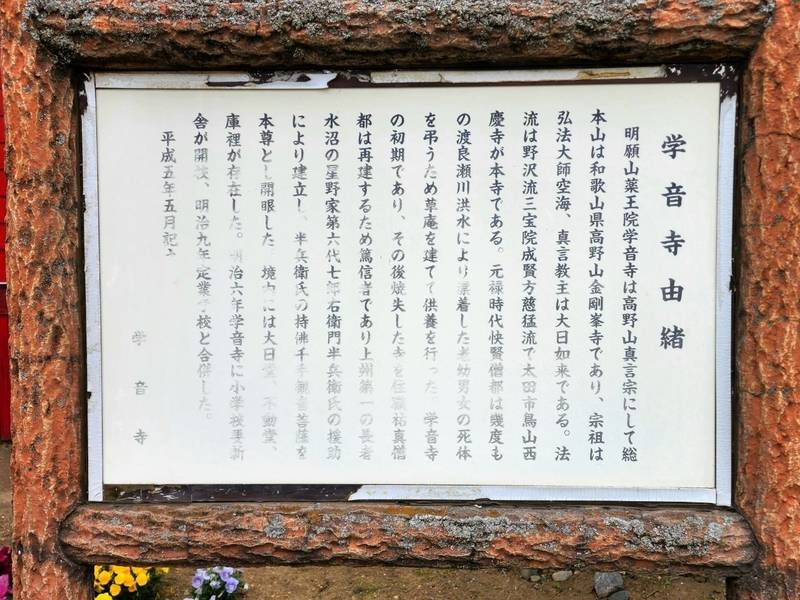 学音寺由緒
明願山薬王院学音寺は高野山真言宗にして総
本山は和歌山県高野山金剛峯寺であり、宗祖は
弘法大師空海、真言教主は大日如来である。法
流は野沢流三宝院成賢方慈猛流で太田市鳥山西
慶寺が本寺である。元禄時代快賢僧都は幾度も
の渡良瀬川洪水により漂着した老幼男女の死体
を弔うため草庵を建てて供養を行った。学音寺
の初期であり、その後焼失した寺を住職祐真僧
都は再建するため篤信者であり上州第一の長者
水沼の星野家第六代七郎右衛門半兵衛氏の援助
により建立し、半兵衛氏の持佛千手観音菩薩を
本尊とし開眼した。境内には大日堂、不動堂、
庫裡が存在した。明治六年学音寺に小学校更新
舎が開校、明治九年定業学校と合併した。
平成五年五月記す
学音寺